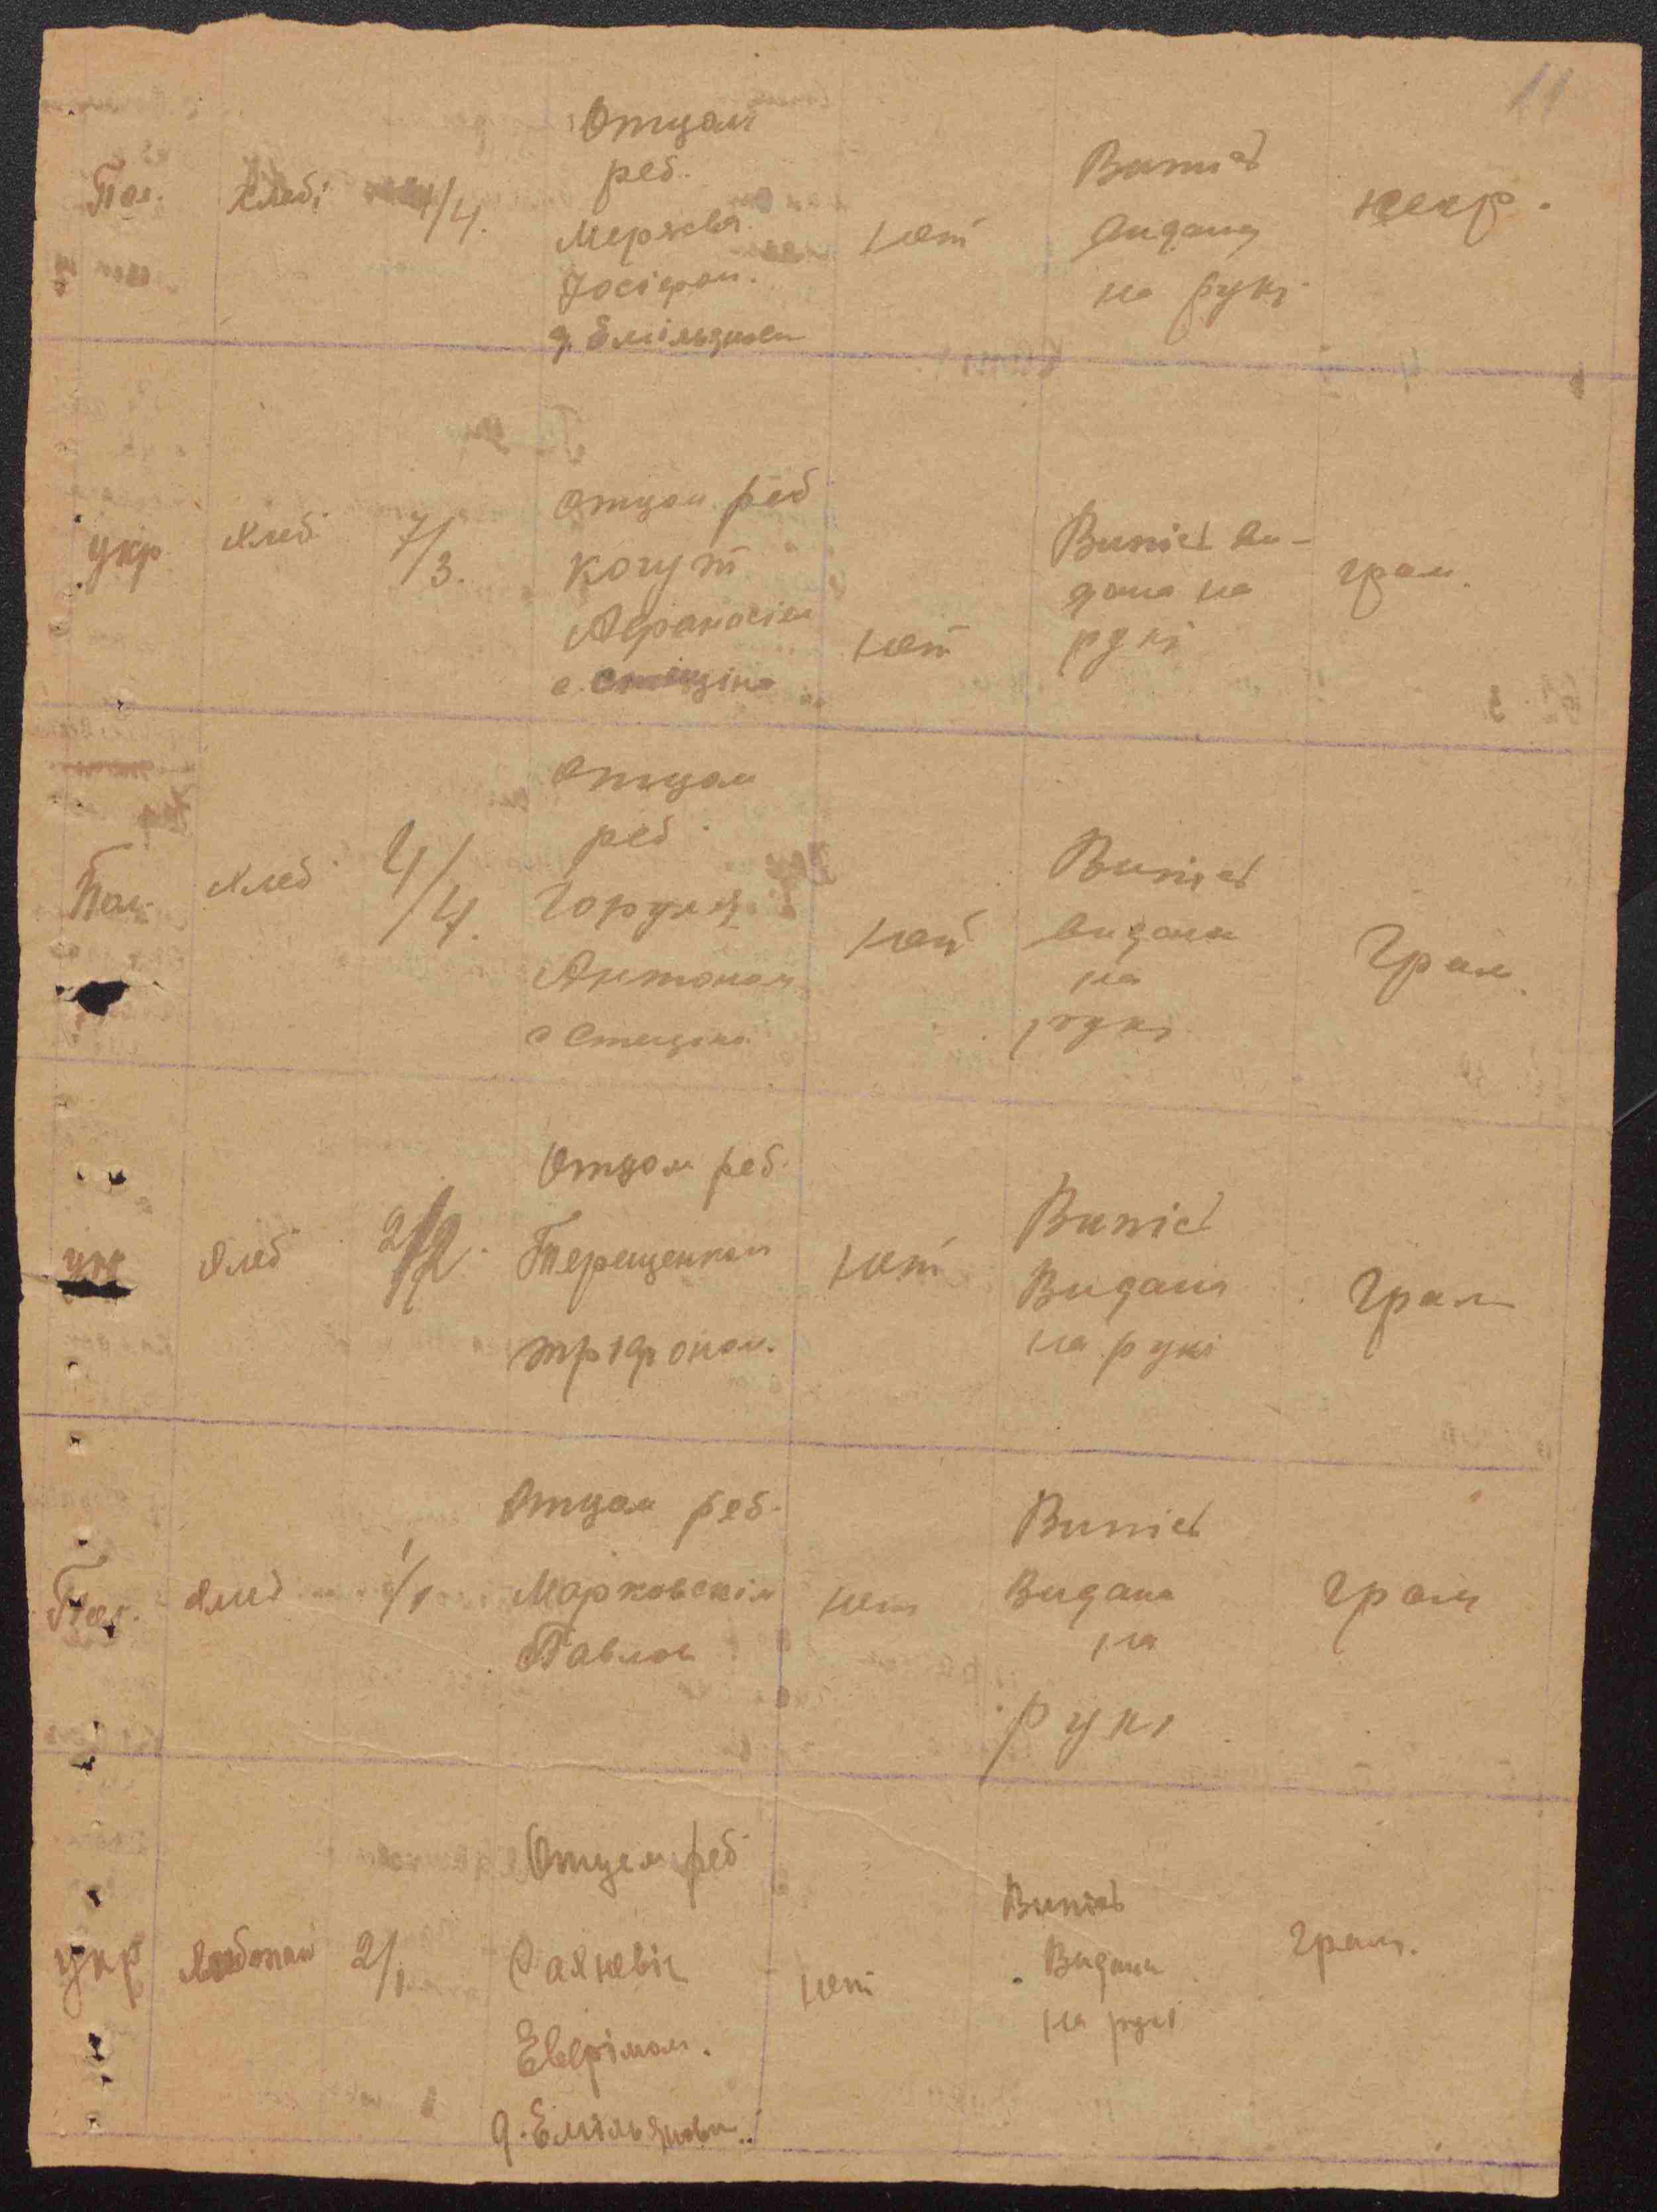 11
Пол.
Хлебі
4/4.
Отцом
реб.
Мержва
Йосіфом.
д. Емільянов
нет
Випись
видана
на рукі
негр.
укр
Хлеб
7/3.
отцом реб
Когут
Афанасієм
с.
нет
Випись ви-
дана на
рукі
грам.
Пол.
Хлеб
4/4.
Отцом
реб
Горуля
Антоном
с Стецина
нет
Випись
видана
на
рукі
Грам.
укр
Хлеб
2/2.
Отцом реб.
Терещенком
тріфоном.
нет
Випись
Видана
на рукі
Грам
Пол.
Хлеб
1/1
Отцом реб.
Марковскім
Павлом
нет
Випись
Видана
на
рукі
Грам
укр
2/1
Отцем реб
Евфімом.
д. Емільянови.
нет
Випись
Видана
на рукі
Грам.